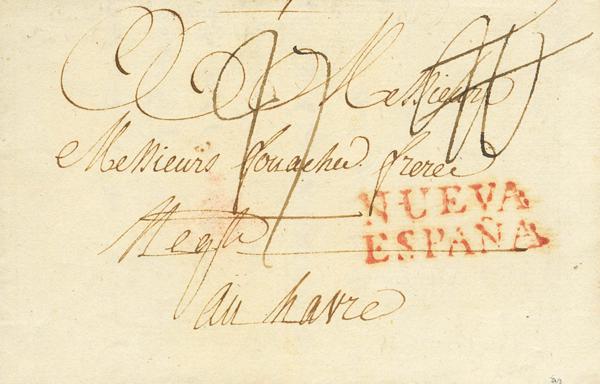 A Messieurs
Messieurs fouache frere
Negts
NUEVA
ESPAÑA
au havre